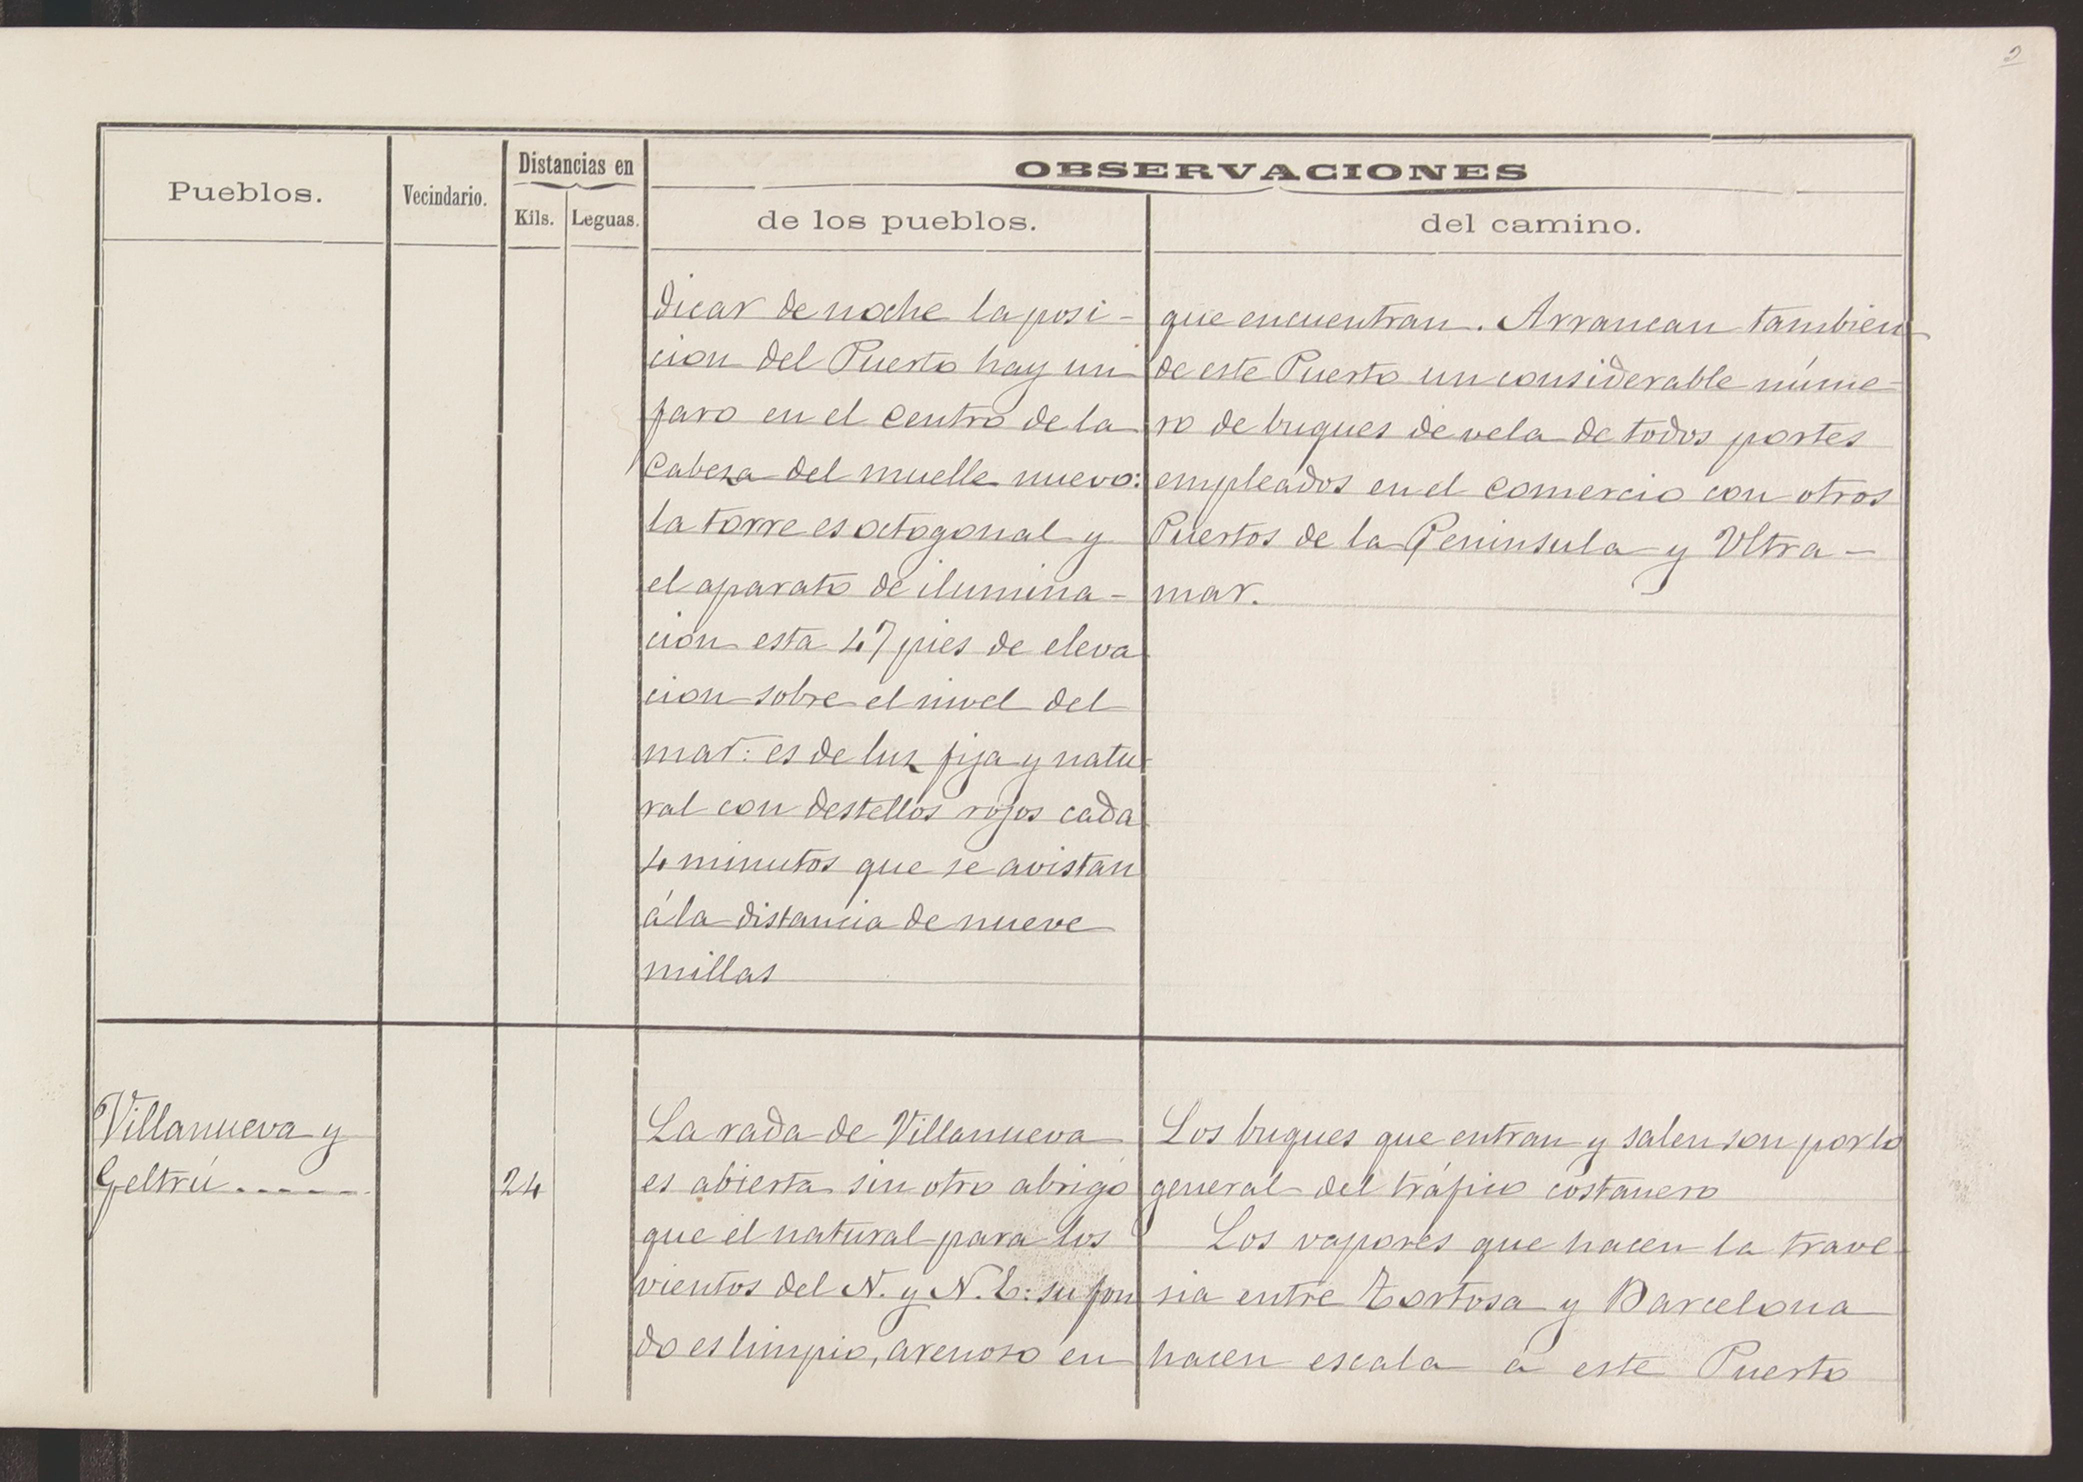 2
Pueblos.
Vecindario.
Distancias en
Kils.
Leguas.
OBSERVACIONES
de los pueblos.
del camino.
dicar de noche la posi-
cion del Puerto hay un
faro en el centro de la
cabeza del muelle nuevo:
la torre es octogonal y
el aparato de ilumina-
ción esta 47 pies de eleva
cion sobre el nivel del
mar: es de luz fija y natu
ral con destellos rojos cada
4 minutos que se avistan
á la distancia de nueve
millas
que encuentran. Arrancan tambien
de este Puerto un considerable núme-
ro de buques de vela de todos portes
empleados en el comercio con otros
Puertos de la Peninsula y Ultra-
mar.
Villanueva y
Geltrú......
24
La rada de Villanueva
es abierta sin otro abrigo
que el natural para los
vientos del N. y N.E: su fon
do es limpio, arenoso en
Los buques que entran y salen son por lo
general del tráfico costanero
Los vapores que hacen la trave-
sia entre Tortosa y Barcelona
hacen escala á este Puerto